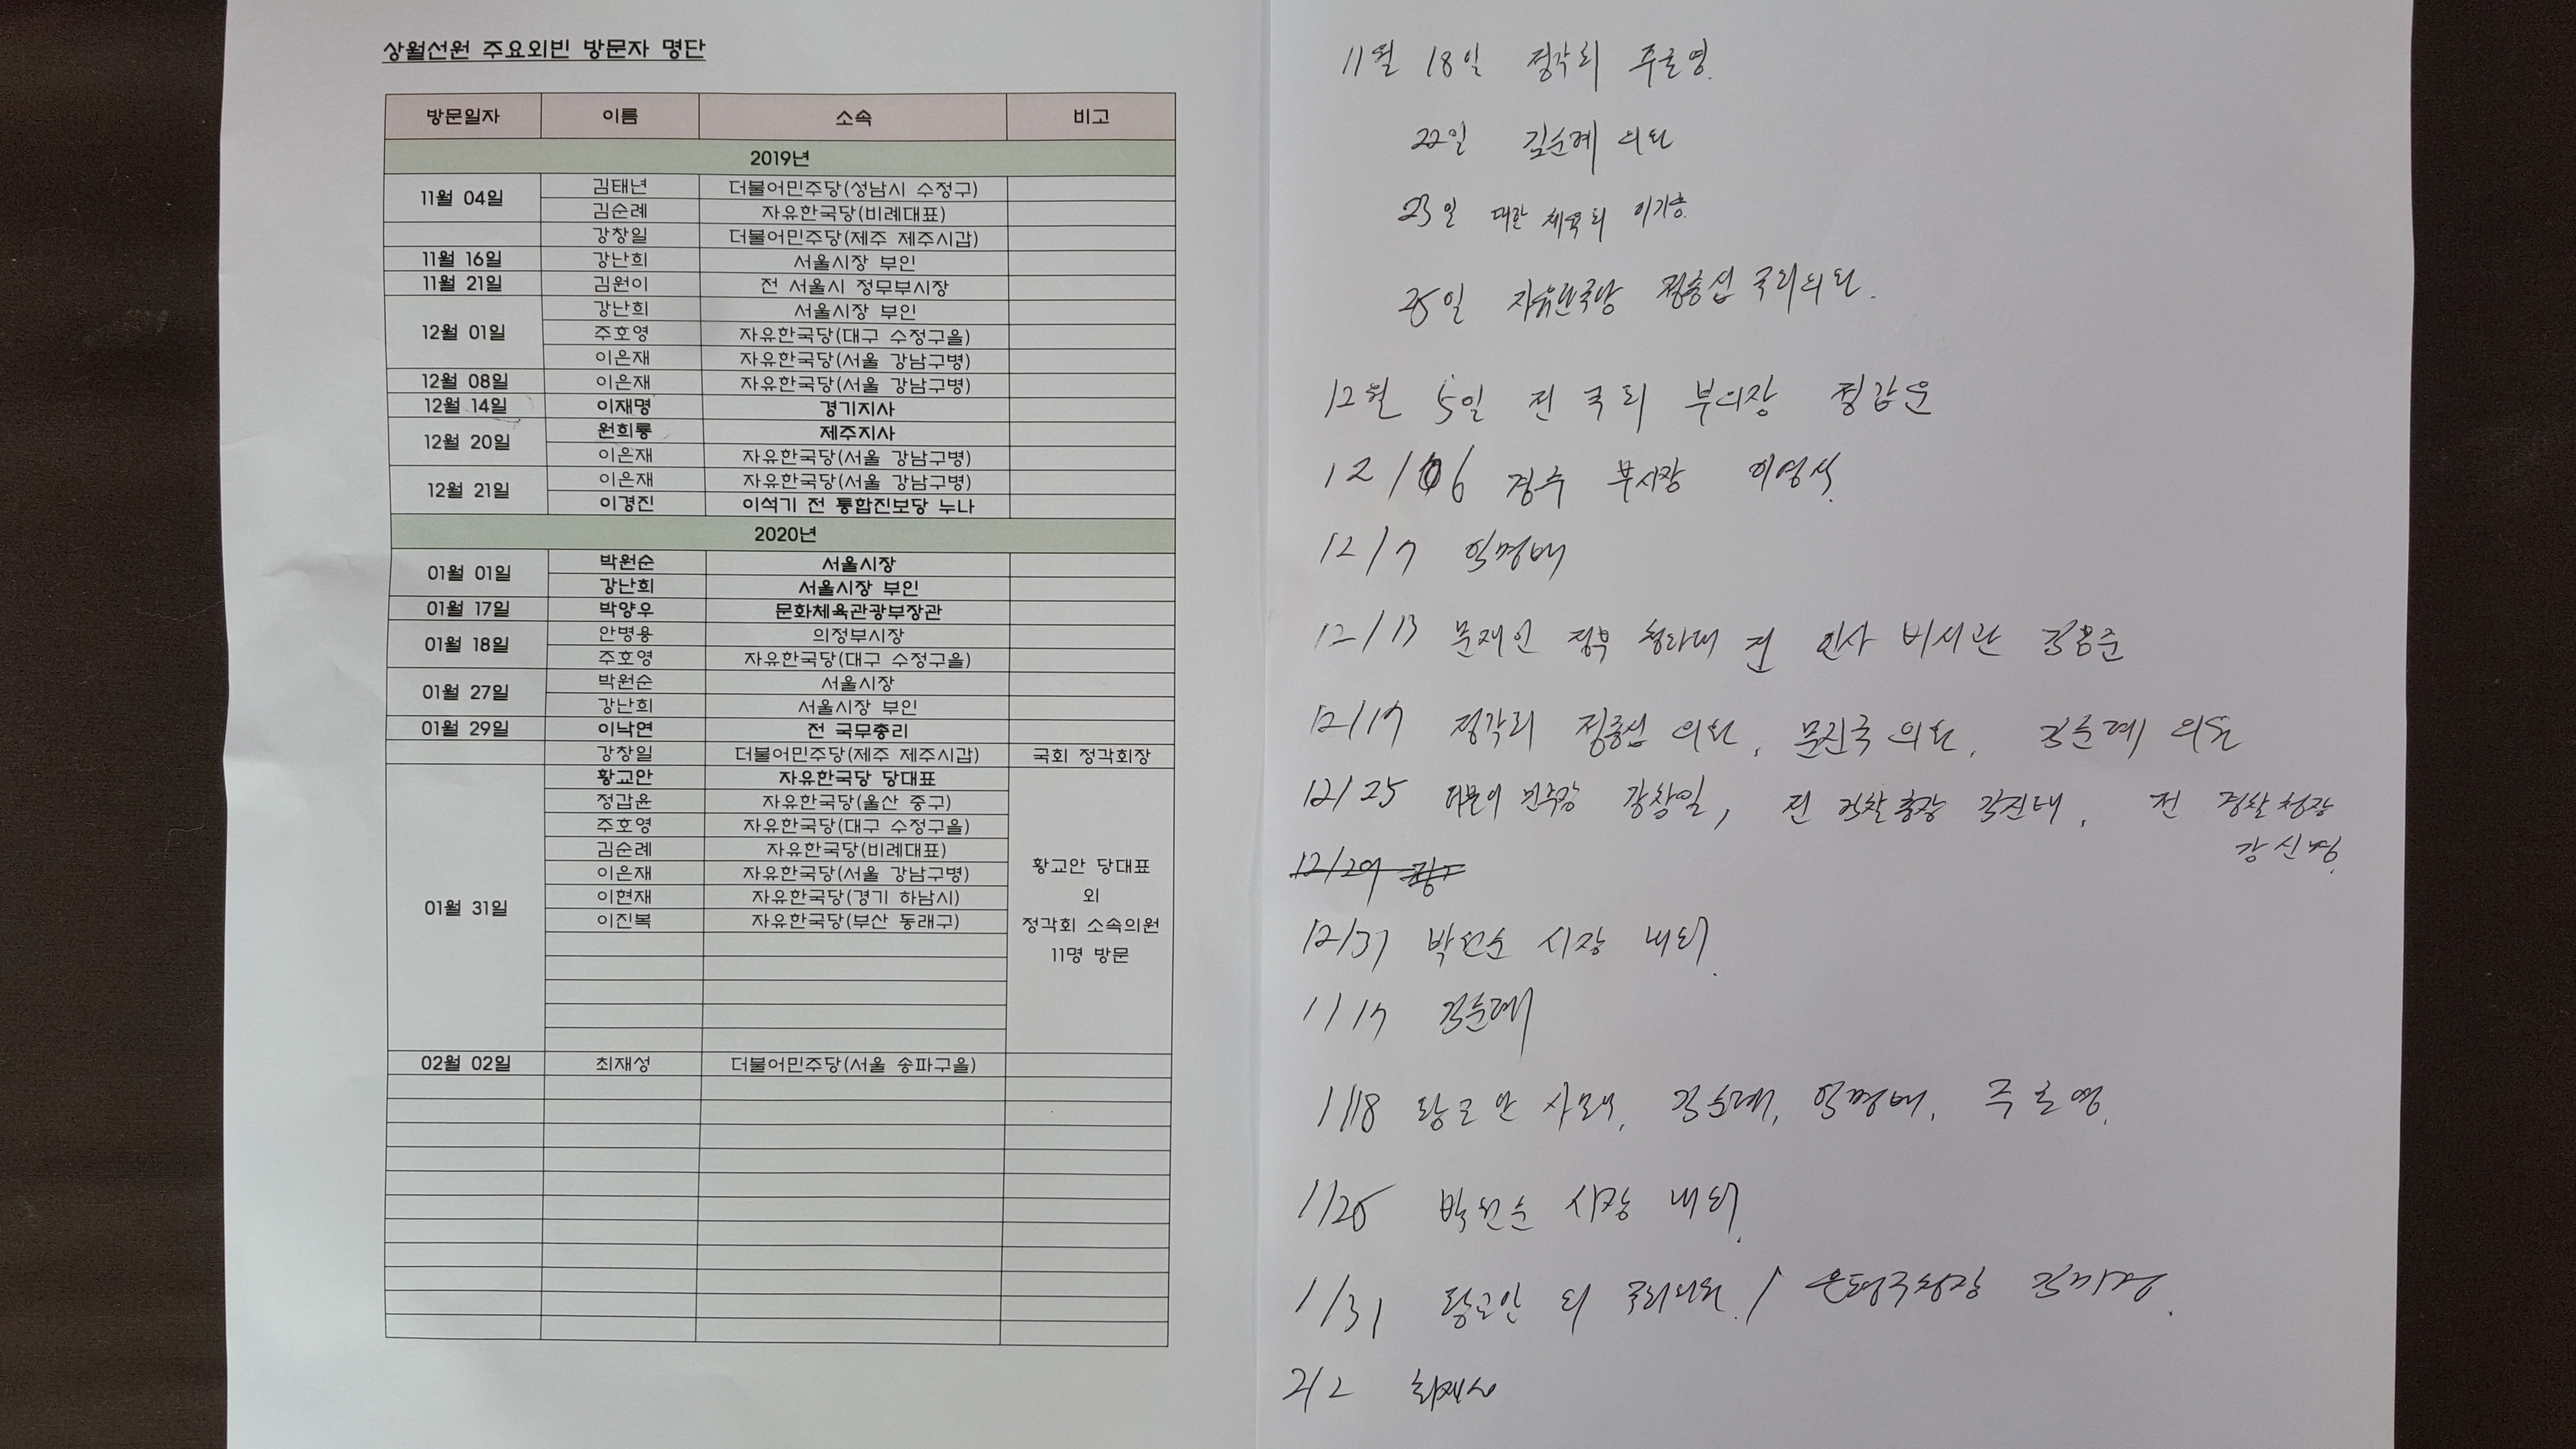 상월선원 주요외빈 방문자 명단
방문일자 이름 소속 비고
2019년
11월 04일 김태년 더불어민주당(성남시 수정구)
김순례 자유한국당(비례대표)
강창일 더불어민주당(제주 제주시갑)
11월 16일 강난희 서울시장 부인
11월 21일 김원이 전 서울시 정무부시장
12월 01일 강난희 서울시장 부인
주호영 자유한국당(대구 수정구을)
이은재 자유한국당(서울 강남구병)
12월 08일 이은재 자유한국당(서울 강남구병)
12월 14일 이재명 경기지사
12월 20일 원희룡 제주지사
이은재 자유한국당(서울 강남구병)
12월 21일 이은재 자유한국당(서울 강남구병)
이경진 이석기 전 통합진보당 누나
2020년
01월 01일 박원순 서울시장
강난희 서울시장 부인
01월 17일 박양우 문화체육관광부장관
01월 18일 안병용 의정부시장
주호영 자유한국당(대구 수정구을)
01월 27일 박원순 서울시장
강난희 서울시장 부인
01월 29일 이낙연 전 국무총리
강창일 더불어민주당(제주 제주시갑) 국회 정각회장
01월 31일 황교안 자유한국당 당대표
정갑윤 자유한국당(울산 중구)
주호영 자유한국당(대구 수정구을)
김순례 자유한국당(비례대표)
이은재 자유한국당(서울 강남구병)
이현재 자유한국당(경기 하남시)
이진복 자유한국당(부산 동래구)
황교안 당대표
외
정각회 소속의원
11명 방문
02월 02일 최재성 더불어민주당(서울 송파구을)
11월 18일 정각회 주호영.
22일 김순례 의원
23일 대한 체육회 이기흥.
25일 자유한국당 정종섭 국회의원.
12월 5일 전 국회 부의장 정갑윤
12/06 경주 부시장 이영석.
12/7 임명배
12/13 문재인 정부 청와대 전 인사 비서관 김봉준
12/17 정각회 정종섭 의원, 문진국 의원, 김순례 의원
12/25 더불어 민주당 강창일, 전 검찰총장 김진태, 전 경찰청장
강신명.
12/29
12/31 박원순 시장 내외.
1/17 김순례
1/18 황교안 사모, 김순례, 임명배, 주호영.
1/25 박원순 시장 내외.
1/31 황교안 외 국회의원 / 은평구청장 김미경.
2/2 최재성